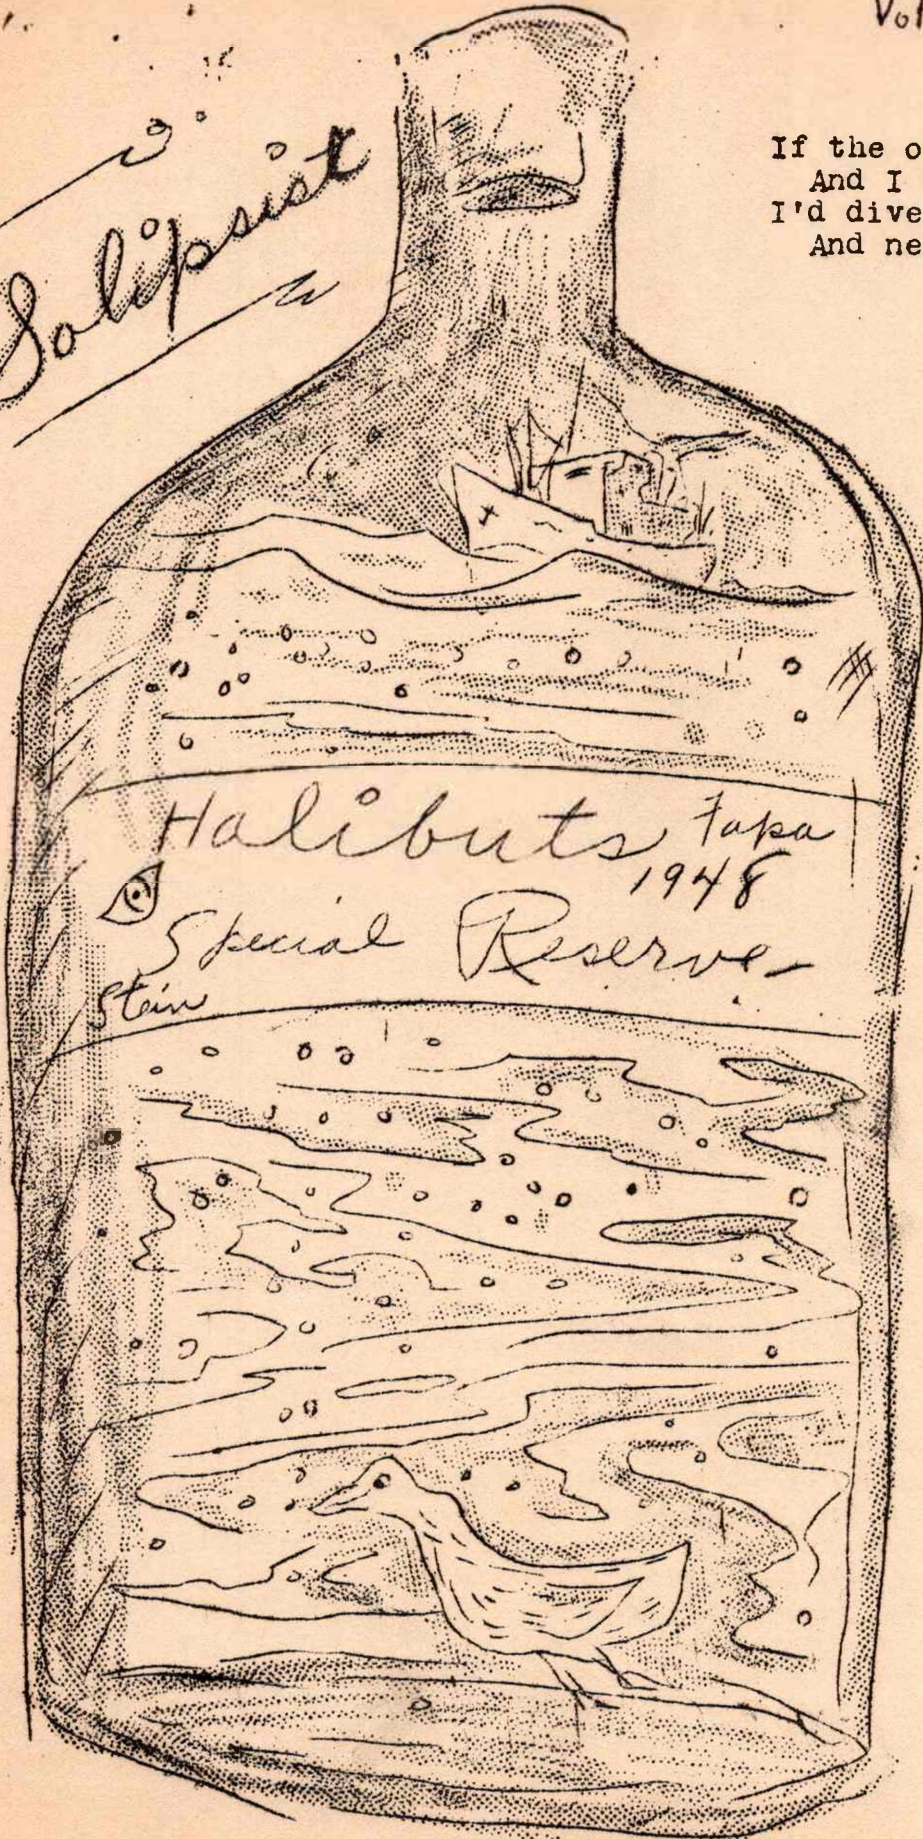 Vol
Solipsist
If the o
And I
I'd dive
And ne
Halibuts
Fapa
1948
Special Reserve
Stein